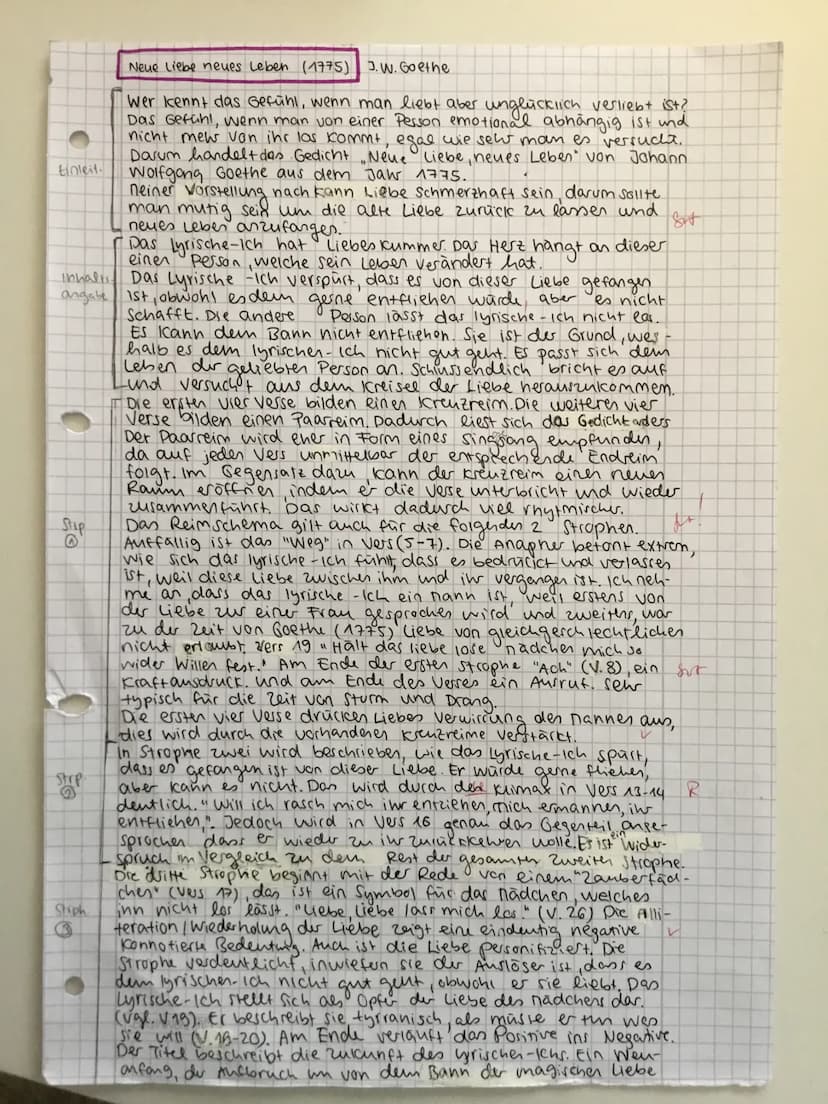 Neue Liebe neues Leben (1775) J.W. Goethe
Wer kennt das Gefühl, wenn man liebt aber unglücklich verliebt ist?
Das Gefühl, wenn man von einer Person emotional abhängig ist und
nicht mehr von ihr los kommt, egal wie sehr man es versucht.
Darum handelt das Gedicht „Neue Liebe, neues Leben" von Johann
Einleit.
Wolfgang Goethe aus dem Jahr 1775.
Meiner Vorstellung nach kann Liebe schmerzhaft sein, darum sollte
man mutig sein um die alte Liebe zurück zu lassen und
neues Leben anzufangen.
Das lyrische-Ich hat Liebeskummer. Das Herz hängt an dieser
einen Person, welche sein Leben verändert hat.
Inhalts
angabe
Das Lyrische-Ich verspürt, dass es von dieser Liebe gefangen
ist, obwohl es dem gerne entfliehen würde, aber es nicht
schafft. Die andere Person lässt das lyrische-Ich nicht los.
Es kann dem Bann nicht entfliehen. Sie ist der Grund, wes-
halb es dem lyrischen-Ich nicht gut geht. Es passt sich dem
Leben der geliebten Person an. Schlussendlich bricht es auf
und versucht aus dem Kreisel der Liebe herauszukommen.
Die ersten vier Verse bilden einen Kreuzreim. Die weiteren vier
Verse bilden einen Paarreim. Dadurch liest sich das Gedicht anders
Der Paarreim wird eher in Form eines Singsang empfunden,
da auf jeden Vers unmittelbar der entsprechende Endreim
folgt. Im Gegensatz dazu, kann der Kreuzreim einen neuen
Raum eröffnen, indem er die Verse unterbricht und wieder
zusammenführt. Das wirkt dadurch viel rhytmischer.
Strp
1
Das Reimschema gilt auch für die folgenden 2 Strophen.
Auffällig ist das "Weg" in Vers (5-7). Die Anapher betont extrem,
wie sich das lyrische-Ich fühlt, dass es bedrückt und verlassen
ist, weil diese Liebe zwischen ihm und ihr vergangen ist. Ich neh-
me an, dass das lyrische-Ich ein Mann ist, weil erstens von
der Liebe zur einer Frau gesprochen wird und zweitens, war
zu der Zeit von Goethe (1775) Liebe von gleichgeschlechtlichen
nicht erlaubt. Vers 19 "Hält das liebe lose Mädchen mich so
wider Willen fest." Am Ende der ersten Strophe "Ach" (V.8), ein
Kraftausdruck. und am Ende des Verses ein Ausruf. Sehr
typisch für die Zeit von Sturm und Drang.
Die ersten vier Verse drücken Liebes Verwirrung des Mannes aus,
dies wird durch die vorhandenen Kreuzreime verstärkt.
In Strophe zwei wird beschrieben, wie das lyrische-Ich spürt,
dass es gefangen ist von dieser Liebe. Er würde gerne fliehen,
Strp.
2
aber kann es nicht. Das wird durch die Klimax in Vers 13-14 R
deutlich. "Will ich rasch mich ihr entziehen, mich ermannen, ihr
entfliehen,". Jedoch wird in Vers 16 genau das Gegenteil ange-
sprochen dass er wieder zu ihr zurückkehren wolle. Es ist ein Wider-
spruch im Vergleich zu dem Rest der gesamten zweiten Strophe.
Die dritte Strophe beginnt mit der Rede von einem "Zauberfäd-
chen" (Vers 17), das ist ein Symbol für das Mädchen, welches
Stroph
3
ihn nicht los lässt. "Liebe, Liebe lass mich los." (V.26) Die Alli-
teration/Wiederholung der Liebe zeigt eine eindeutig negative
konnotierte Bedeutung. Auch ist die Liebe personifiziert. Die
Strophe verdeutlicht, inwiefern sie der Auslöser ist, dass es
dem lyrischen-Ich nicht gut geht, obwohl er sie liebt. Das
Lyrische-Ich stellt sich als Opfer der Liebe des Mädchens dar.
(Vgl. V19). Er beschreibt sie tyrranisch, als müsse er tun was
sie will (V.18-20). Am Ende verläuft das Positive ins Negative.
Der Titel beschreibt die Zukunft des lyrischen-Ichs. Ein Neu-
anfang, der Aufbruch um von dem Bann der magischen Liebe